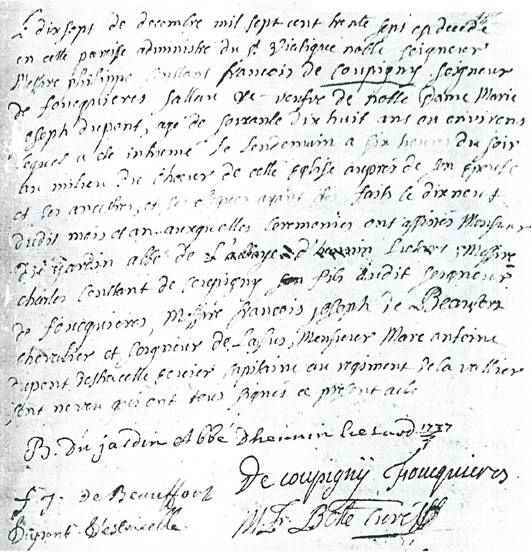 Le dix sept de decembre mil sept cent trente sept est decedé
en cette paroisse administré du St Viatique noble seigneur
Messire philippe Constant francois de Coupigny seigneur
de foucquieres Sallau &c veufve de noble Dame Marie
joseph dupont, agé de soixante dix huit ans ou environs
lequel a été inhumé le lendemain a six heures du soir
au milieu du Choeur de cette Eglise aupres de son Epouse
et ses ancestres, et ses obseques ayant été faits le dix neuf
dudit mois et an auxquelles ceremonies ont assistés Monsieur
Du jardin abbé de L'abbaye d'henin Lietard, Messire
charles Constant de Coupigny fils dudit seigneur
de foucquieres, Messire francois joseph de Beaufort
chevalier et seigneur de Lassus, Monsieur Marc antoine
dupont destrecelle ecuier capitaine au regiment de la vallier
son neveu qui ont tous signés ce present acte
B. Du jardin Abbé Dhennin Lietard 1737
De coupignÿ foucquieres
f. j. de Beauffort
Dupont Destrecelle
M. fr Bote Curé